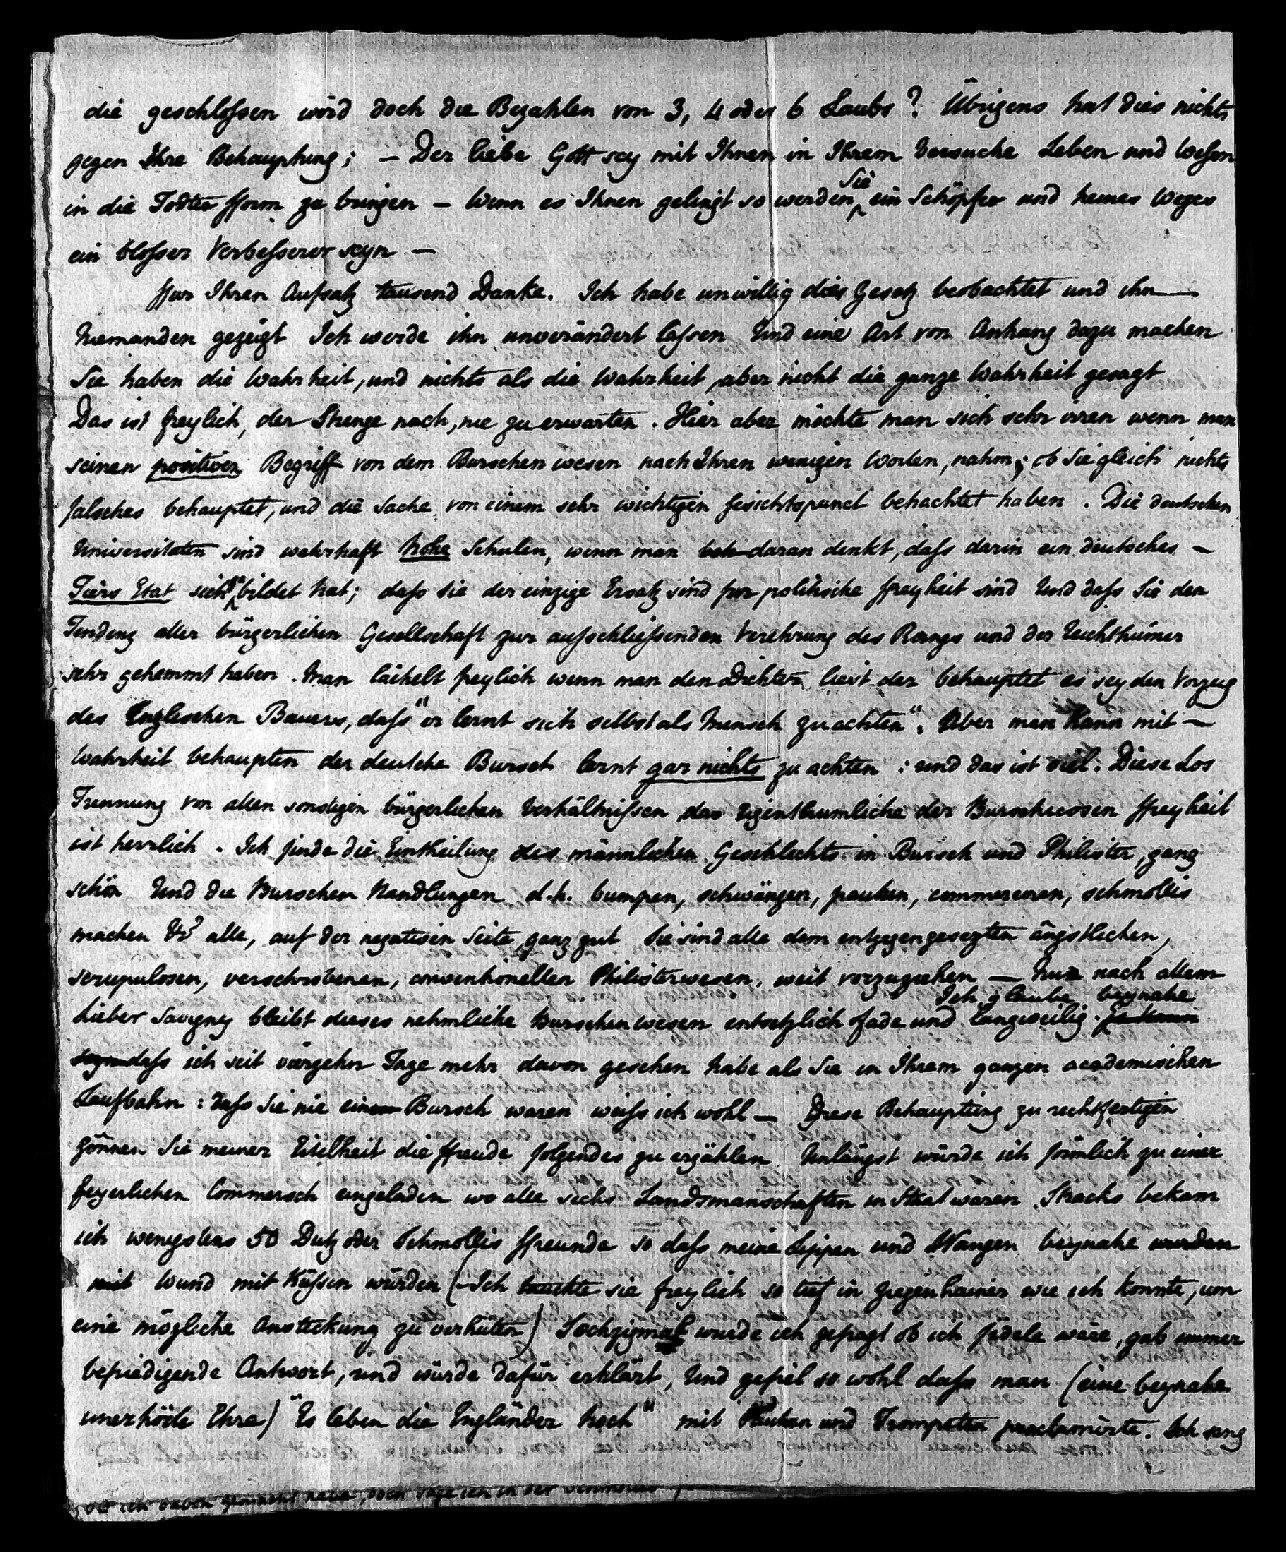 die geschlossen wird doch die Bezahlen von 3, 4 oder 6 Laubs? Übrigens hat dies nichts
gegen Ihre Behauptung; – Der liebe Gott sey mit Ihnen in Ihrem Versuche Leben und Wesen
in die Todten fform zu bringen – Wenn es Ihnen gelingt so werden Sie ein Schöpfer und keines Weges
ein blosser Verbesserer seyn –
ffur Ihren Aufsatz tausend Danke. Ich habe unwillig dies Gesetz beobachtet und ihn
Niemanden gezeigt Ich werde ihn unverändert lassen Und eine Art von Anhang dazu machen
Sie haben die Wahrheit, und nichts als die Wahrheit, aber nicht die ganze Wahrheit gesagt
Das ist freylich, der Strenge nach, nie zu erwarten. Hier aber möchte man sich sehr irren wenn man
seinen positiven Begriff von dem Burschen wesen nach Ihren wenigen Worten, nahm; ob Sie gleich nichts
falsches behauptet, und die Sache von einem sehr wichtigen Gesichtspunct betrachtet haben. Die deutschen
Universitäten sind wahrhaft hohe Schulen, wenn man daran denkt, dass darin ein deutsches –
Tiers Etat sich gebildet hat; dass sie der einzige Ersatz sind fur politische ffreyheit sind Und dass Sie den
Tendenz aller bürgerlichen Gesellschaft zur ausschliessenden Verehrung des Rangs und der Reichthümer
sehr gehemmt haben. Man lächelt freylich wenn man den Dichter liest der behauptet es sey den Vorzug
des Englischen Bauers, dass "er lernt sich selbst als Mensch zu achten". Aber man kann mit –
Wahrheit behaupten der deutsche Bursch lernt gar nichts zu achten: und das ist viel. Diese Los
Trennung von allen sonstigen bürgerlichen Verhältnissen das eigenthumliche der Burschicosen ffreyheit
ist herrlich. Ich finde die Eintheilung des männlichen Geschlechts in Bursch und Philister, ganz
schön Und die Burschen Handlungen d.h. pumpen, schwänzen, pauken, commerciren, schmollis
machen &c alle, auf der negativen Seite, ganz gut Sie sind alle dem entgegengesezten ängstlichen,
scrupulosen, verschrobenen, conventionellen Philisterwesen, weit vorzuziehen – Nur nach allem
Lieber Savigny bleibt dieses nehmliche Burschenwesen entsetzlich ffade und langweilig. Ich glaube beynahe
dass ich seit vierzehn Tage mehr davon gesehen habe als Sie in Ihrem ganzen academischen
Laufbahn: Dass Sie nie ein Bursch waren weiss ich wohl – Diese Behauptung zu rechtfertigen
gönnen Sie meiner Eitelheit die ffreude folgendes zu erzählen Unlängst würde ich förmlich zu einer
feyerlichen Commersch eingeladen wo alle sechs Landsmanschaften in Staat waren. Stracks bekam
ich wenigstens 50 Dutz oder Schmollis ffreunde so dass meine Lippen und Wangen beynahe
wund mit Küssen würden (Ich tauchte sie freylich so tief in Ziegenhainer wie ich konnte, um
eine mögliche Ansteckung zu verhüten) Sechzigmal wurde ich gefragt ob ich fidele wäre, gab immer
befriedigende Antwort, und würde dafür erklärt, Und gefiel so wohl dass man (eine beynahe
unerhörte Ehre) "Es leben die Engländer hoch" mit Pauken und Trompeten proclamirte. Ich sang